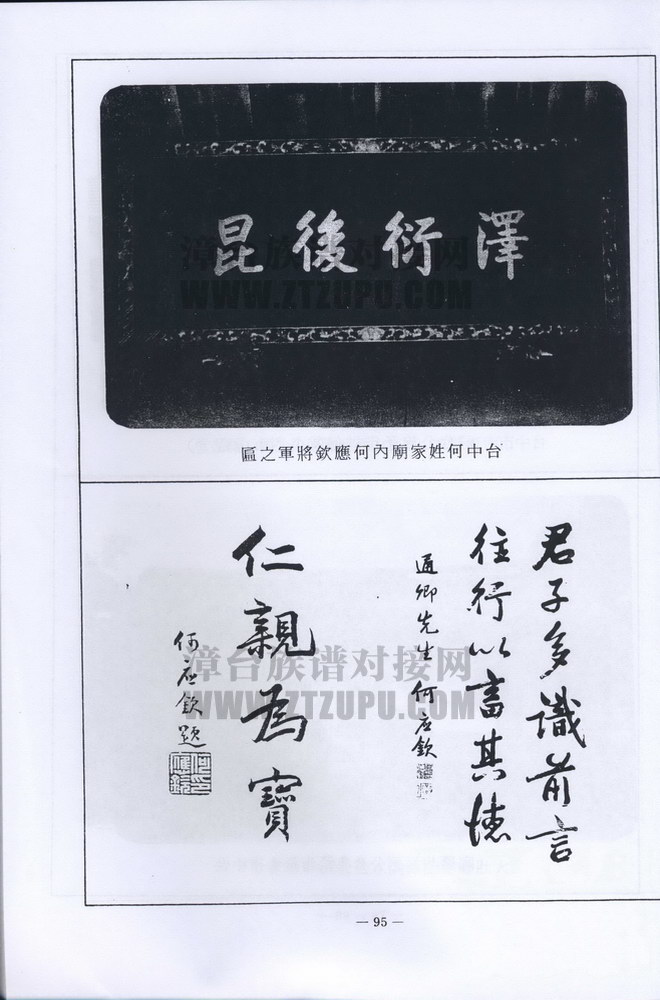 澤衍後昆
漳台族谱对接网
WWW.ZTZUPU.COM
台中何姓家廟內何應欽將軍之匾
君子多識前言
往行以畜其德
通卿先生 何应欽
仁親為寶
何应欽題
漳台族谱对接网
WWW.ZTZUPU.COM
— 95 —